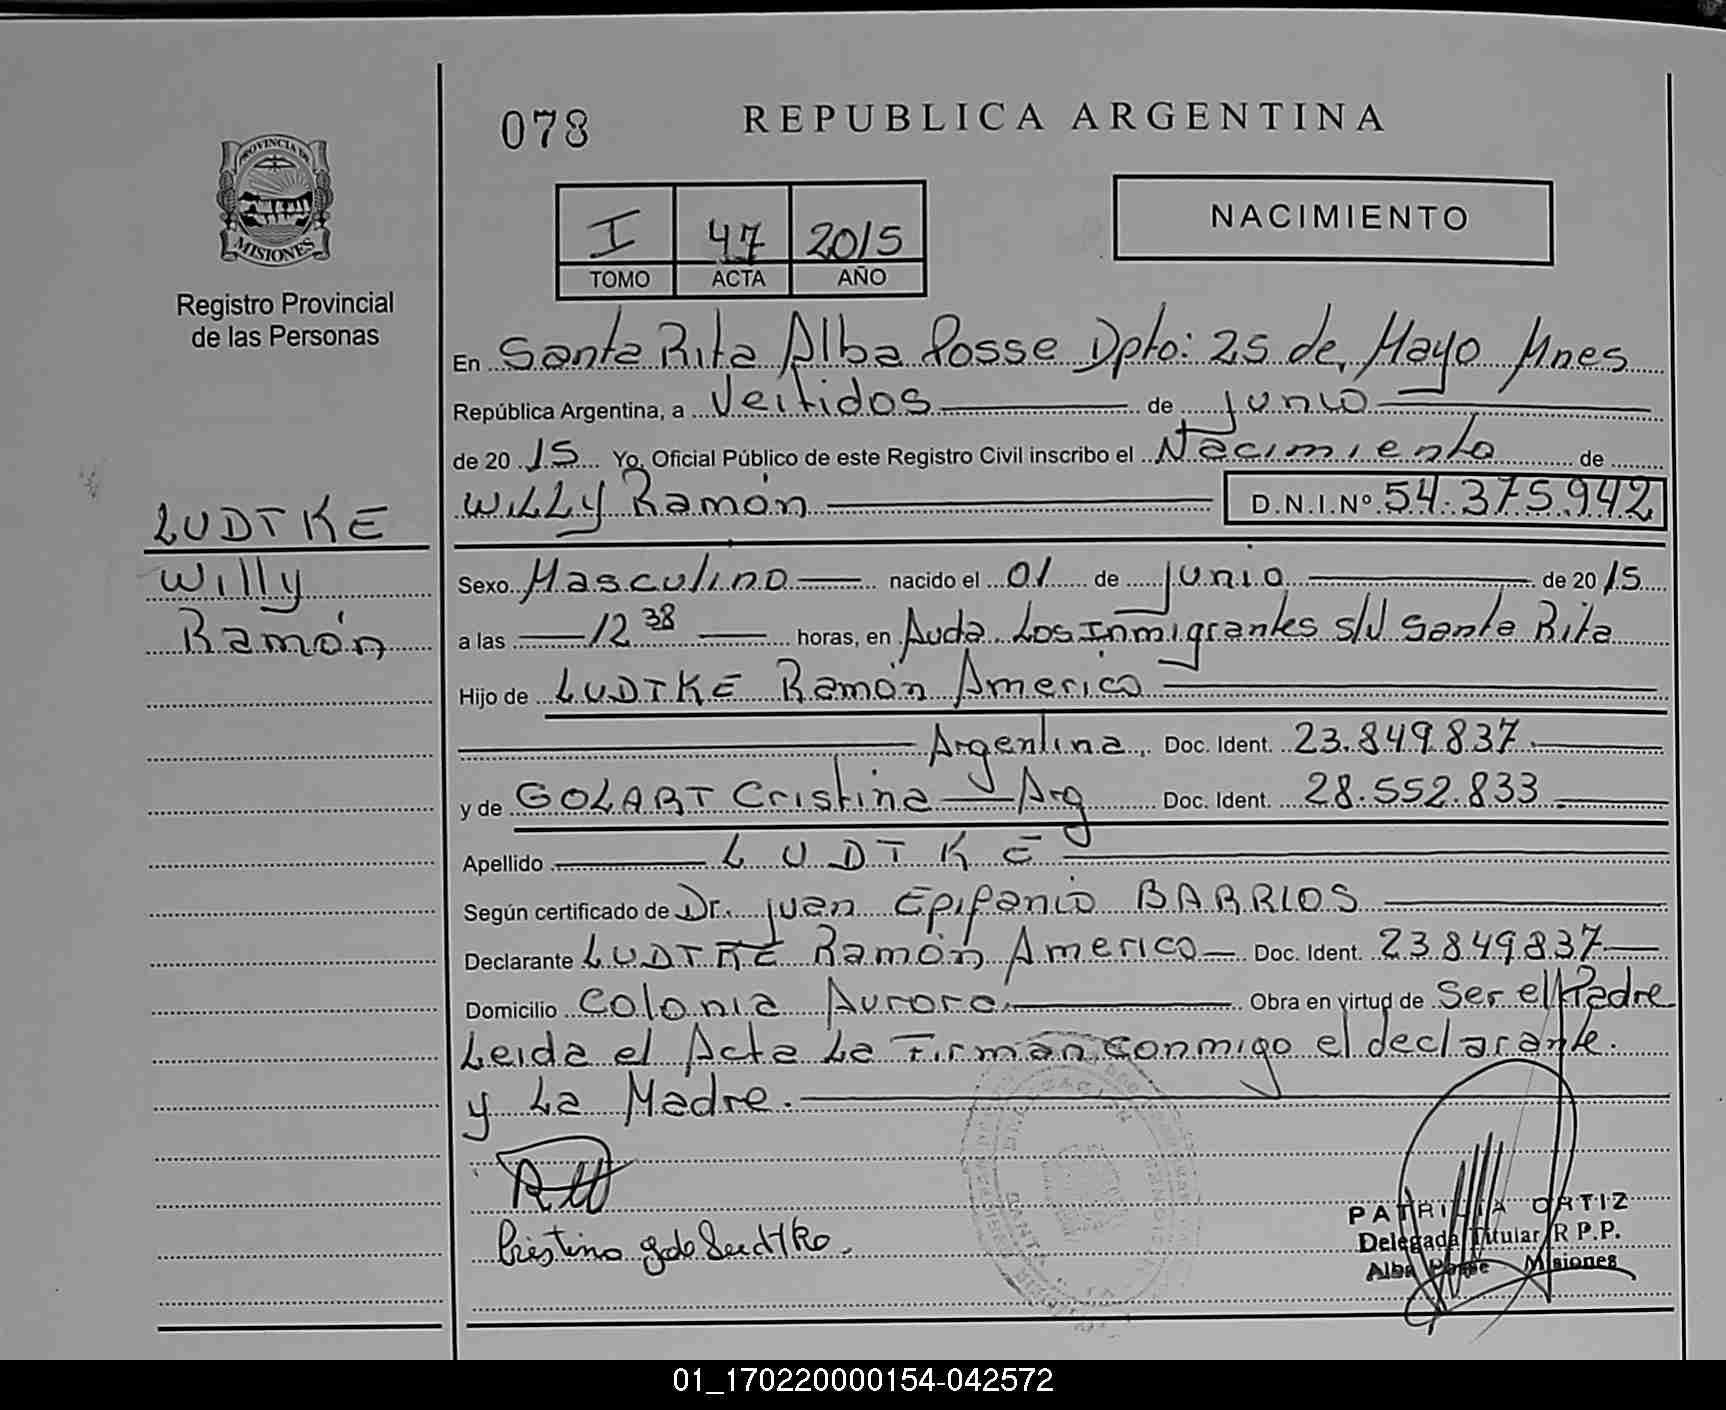 078
REPUBLICA ARGENTINA
PROVINCIA DE
MISIONES
Registro Provincial
de las Personas
I 47 2015
TOMO ACTA AÑO
NACIMIENTO
En Santa Rita Alba Posse Dpto: 25 de Mayo Mnes
República Argentina, a Veitidos de junio
de 20 15 Yo, Oficial Público de este Registro Civil inscribo el Nacimiento de
WILLY Ramón D.N.I.Nº 54.375.942
LUDTKE
Willy
Ramón
Sexo Masculino nacido el 01 de junio de 20 15
a las 12 38 horas, en Avda Los Inmigrantes s/N Santa Rita
Hijo de LUDTKE Ramón Americo
Argentina, Doc. Ident. 23.849.837
y de GOLART Cristina Arg Doc. Ident. 28.552.833
Apellido LUDTKE
Según certificado de Dr. juan Epifanio BARRIOS
Declarante LUDTKE Ramón Americo Doc. Ident. 23.849837
Domicilio Colonia Aurora Obra en virtud de Ser el Padre
Leida el Acta La Firman conmigo el declarante.
y La Madre.
Cristina g de Ludtke
PATRICIA ORTIZ
Delegada Titular R.P.P.
Alba Posse Misiones
01_170220000154-042572